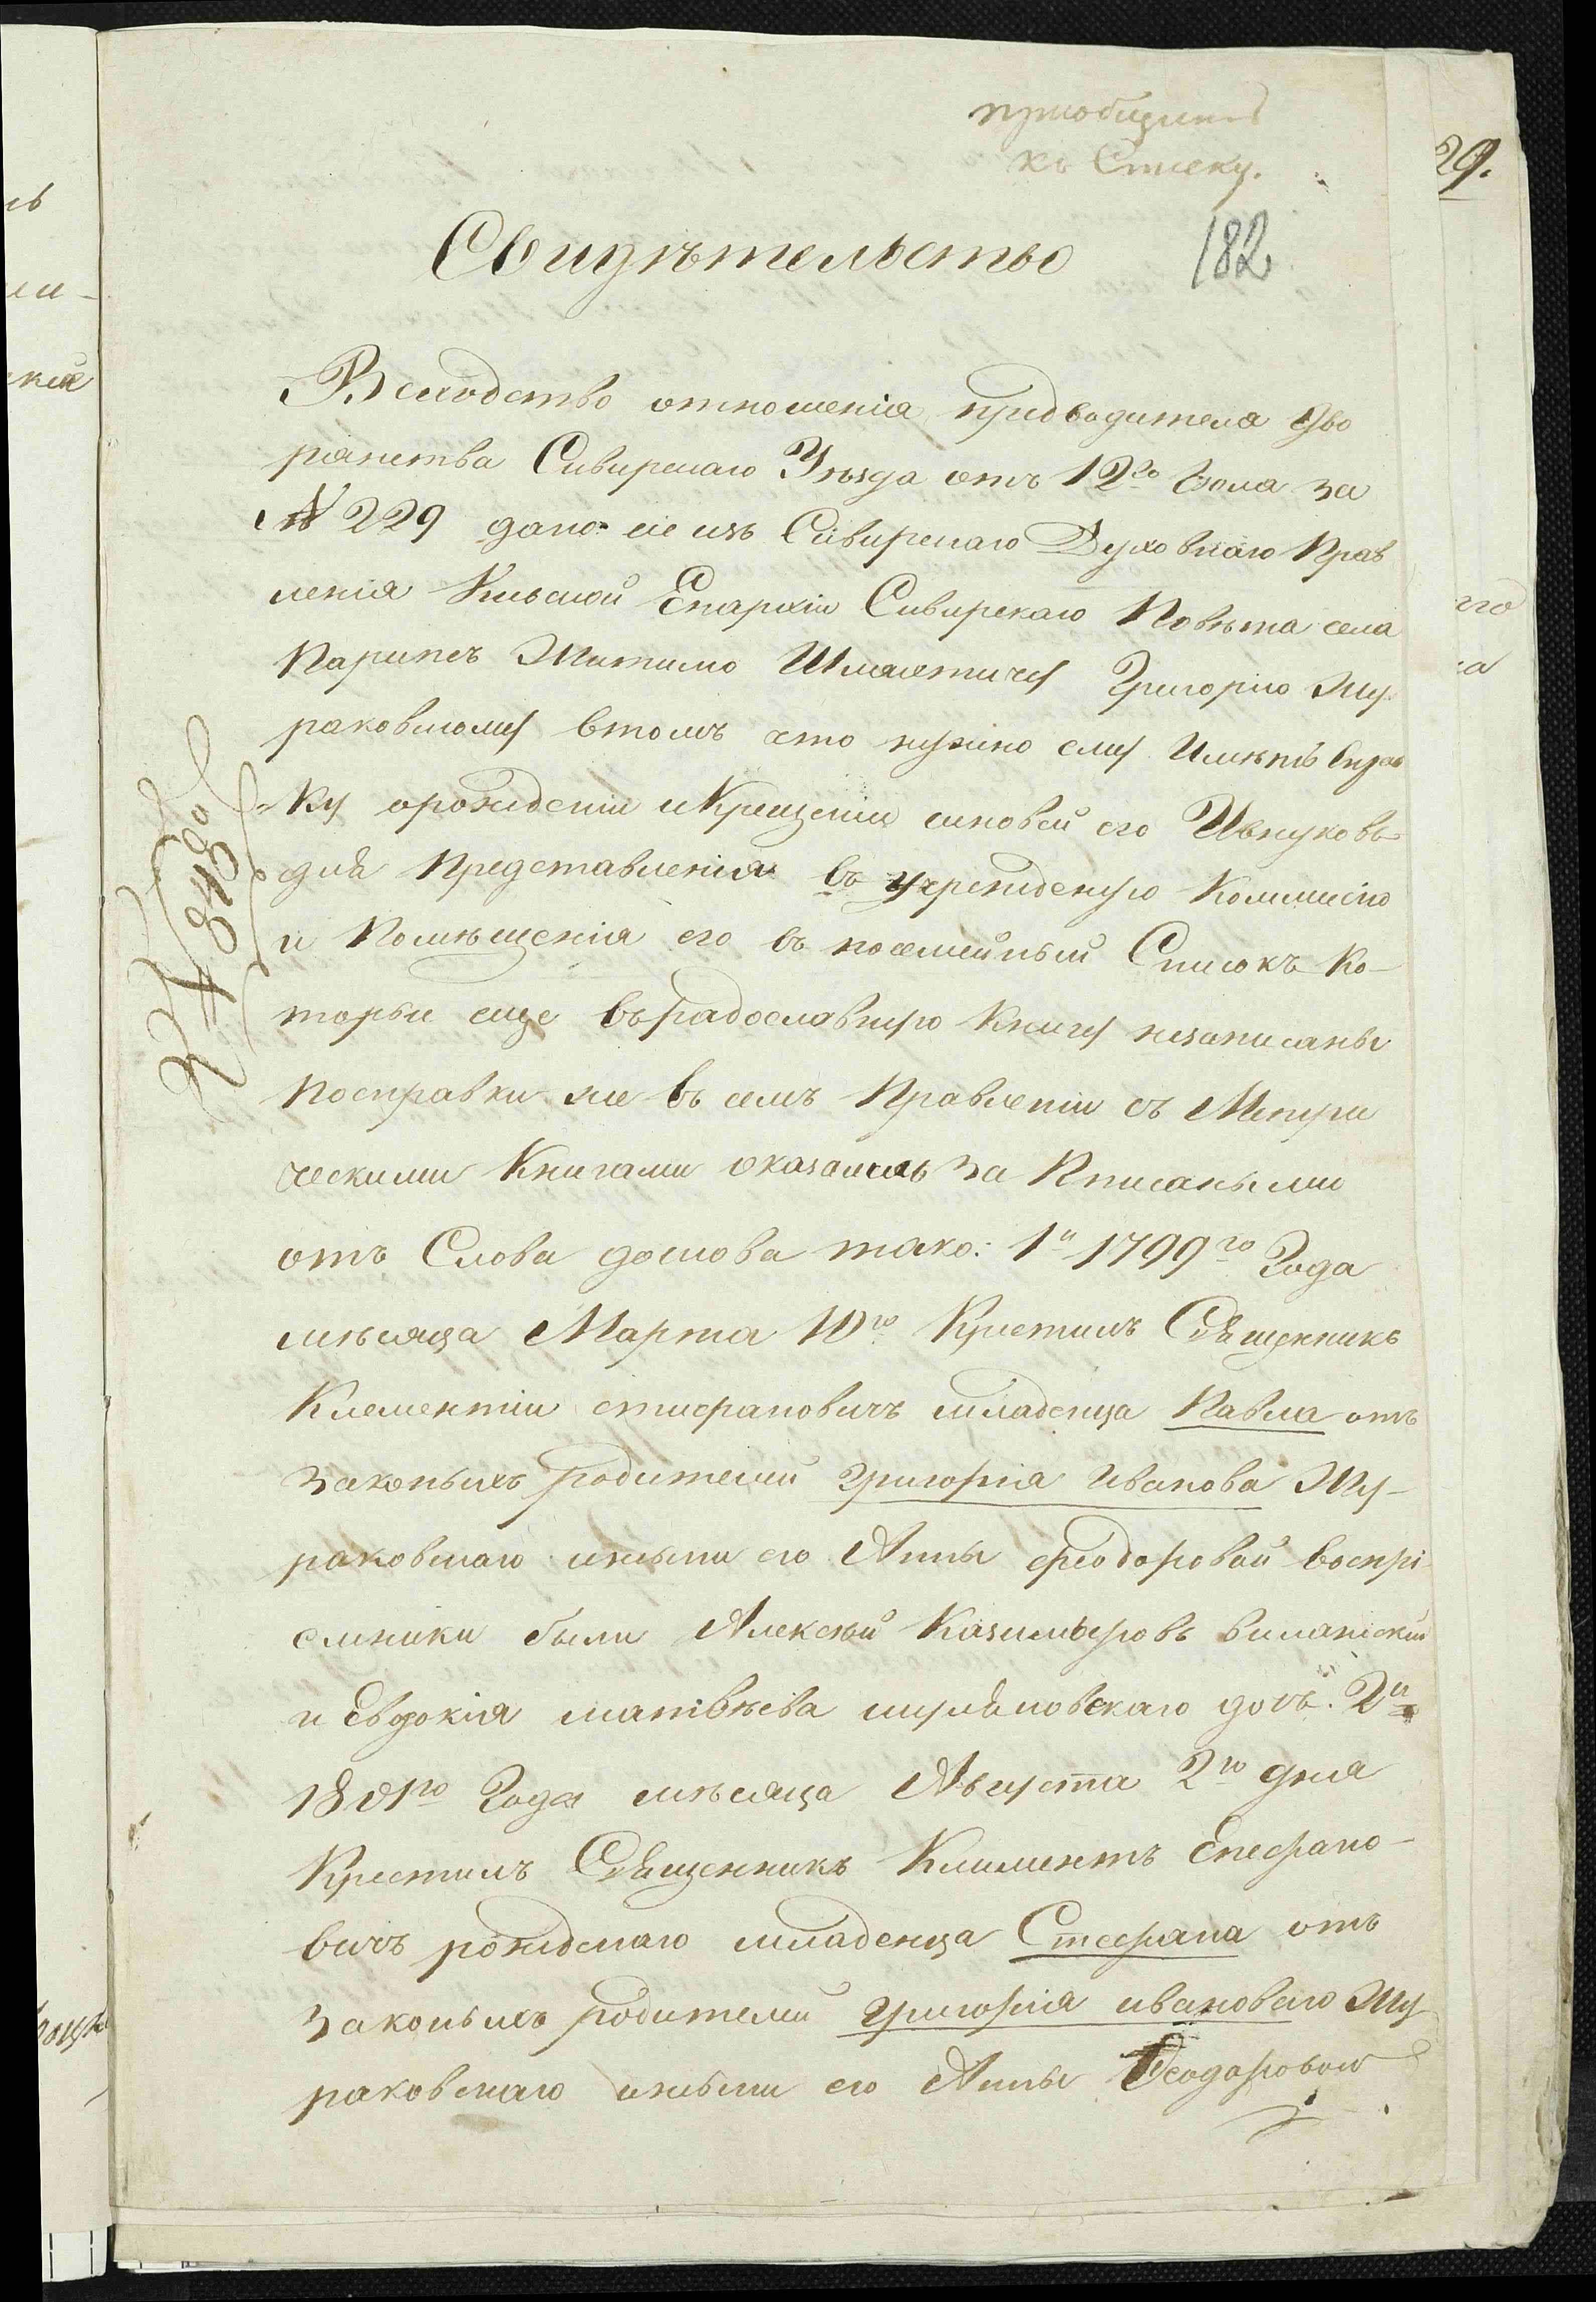 приобщить
къ Списку.
29.
182
Свидѣтельство
Вслѣдство отношенія предводителя дво
рянства Сквирскаго Уѣзда отъ 12го Іюля за
№ 229 дано сіе изъ Сквирскаго Духовнаго Прав
ленія Кіевской Епархіи Сквирскаго Повѣта села
Парипсъ Жителю Шляхтичу Григорію Жу
раковскому втомъ что нужно ему Имѣть Справ
ку орожденіи иКрещеніи сыновей его Ивнуковъ
для Представленія въ учрежденую Коммисію
и Помѣщенія его въ посемейный Списокъ Ко-
торые еще върадословную Книгу незаписаны
Посправки же въ семъ Правленіи съ Метри
ческими Книгами оказались За Писаными
отъ Слова дослова тако: 1й 1799го Года
мѣсяца Марта 10го Крестилъ Священникъ
Клементіи епифановичъ младенца Павла отъ
законыхъ родителей Григорія Иванова Жу-
раковскаго ижены его Анны феодоровой воспрі
емники были Алексѣй Казимѣровъ
и Евдокія матвѣева дочь. 2й
1801го Года мѣсяца Августа 2го дня
Крестилъ Священникъ Климентъ Епефано-
вичъ рожденаго младенца Стефана отъ
законыхъ родителей Григорія ивановаго Жу
раковскаго ижены его Анны Феодоровой